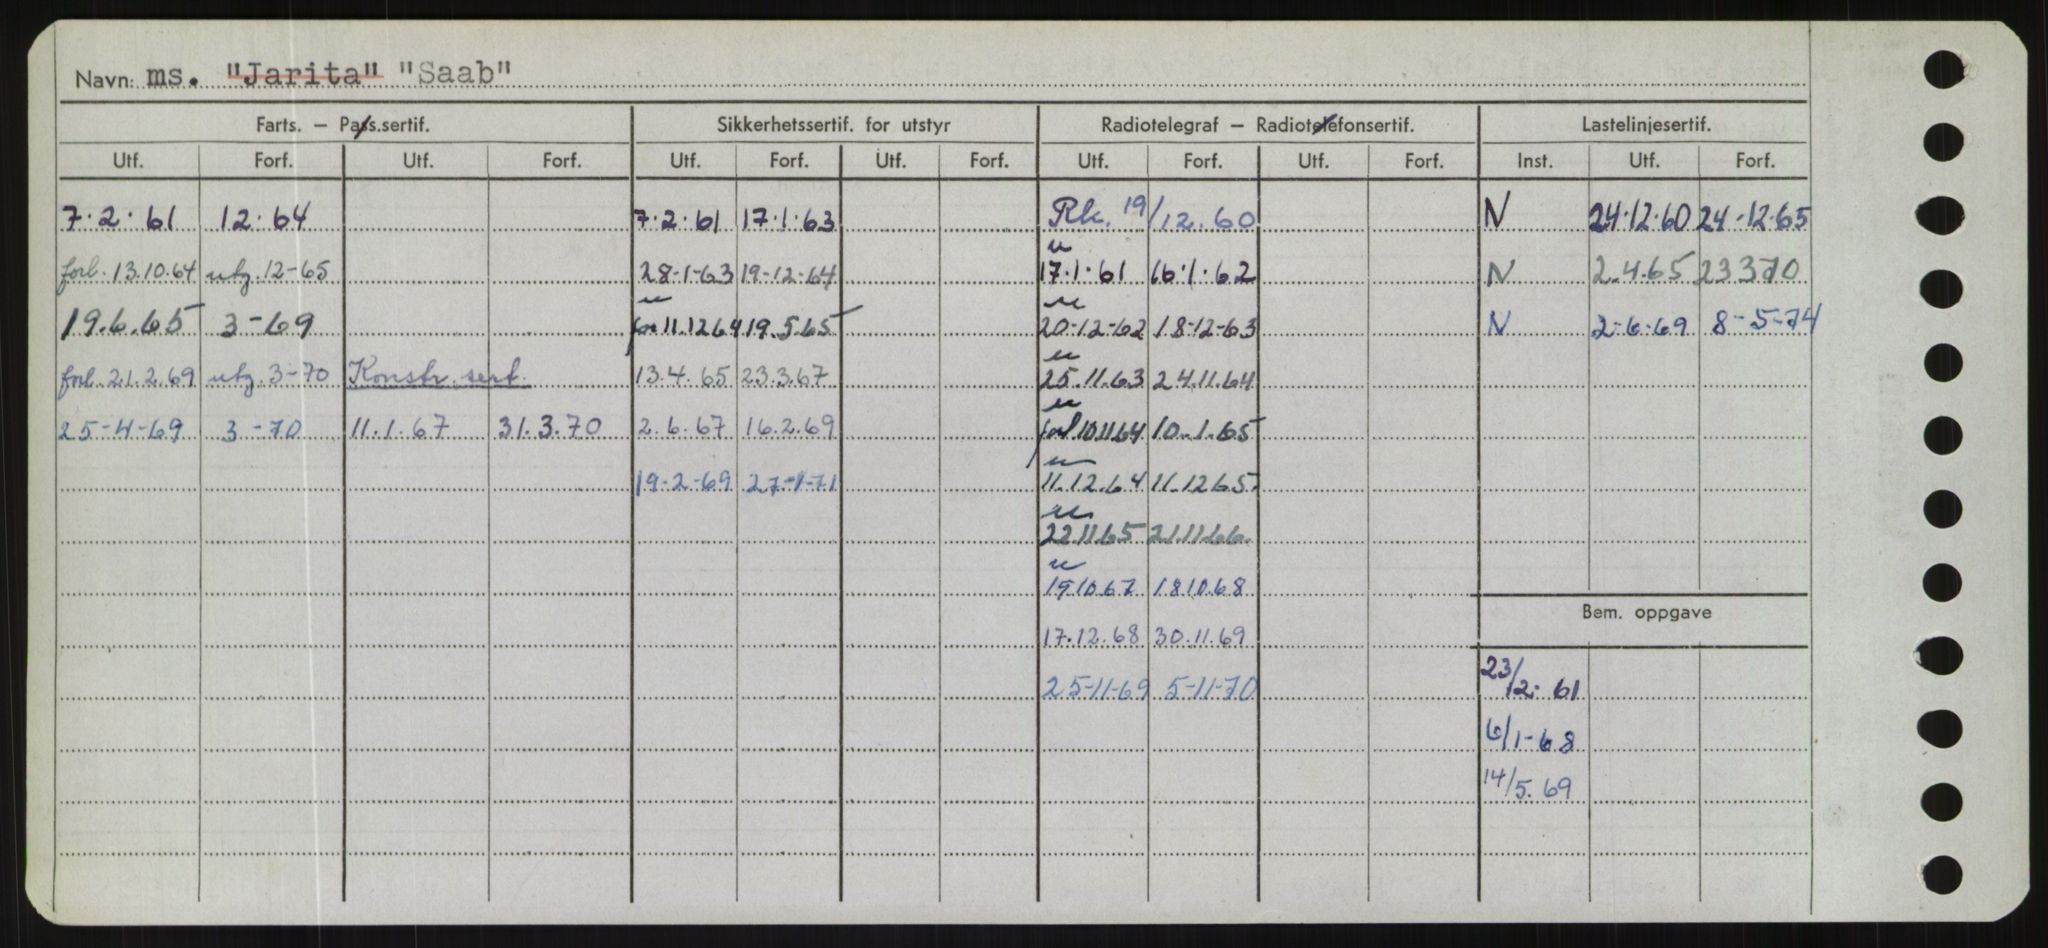 Navn: ms. "Jarita" "Saab"
Farts. – Pass.sertif. Sikkerhetssertif. for utstyr Radiotelegraf – Radiotelefonsertif. Lastelinjesertif.
Utf. Forf. Utf. Forf. Utf. Forf. Utf. Forf. Utf. Forf. Utf. Forf. Inst. Utf. Forf.
7.2.61 12.64 7.2.61 17.1.63 Rk. 19/12.60 N 24.12.60 24-12-65
forl. 13.10.64 utg. 12-65 28-1-63 19-12-64 17.1.61 16.1.62 N 2.4.65 23370
19.6.65 3-69 11.1264 19.5.65 20-12-62 18-12-63 N 2-6-69 8-5-74
forl. 21.2.69 utg. 3-70 Konstr. sert. 13.4.65 23.3.67 25.11.63 24.11.64
25-4-69 3-70 11.1.67 31.3.70 2.6.67 16.2.69 forl 101164 10.1.65
19-2-69 27-1-71 11.12.64 11.1265
221165 21.1166.
191067 1810.68
Bem. oppgave
17.12.68 30.11.69
23/2-61
25-11-69 5-11-70
6/1-68
14/5.69